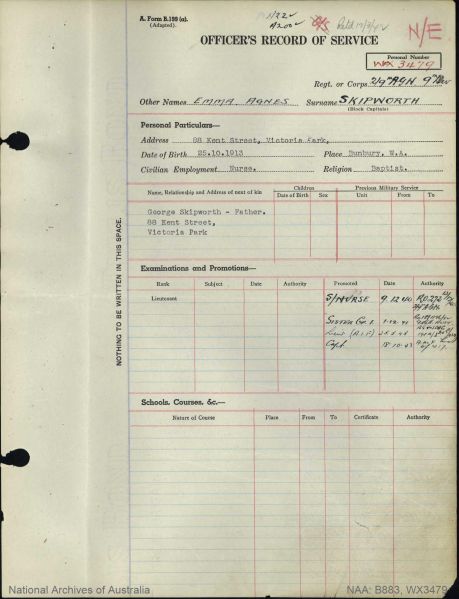 A. Form B.199 (a).
(Adapted).
N/E
OFFICER'S RECORD OF SERVICE
Personal Number
WX 3479
Regt. or Corps
Other Names EMMA AGNES Surname SKIPWORTH
(Block Capitals)
Personal Particulars—
Address 88 Kent Street, Victoria Park,
Date of Birth 25.10.1913 Place Bunbury, W.A.
Civilian Employment Nurse. Religion Baptist.
Name, Relationship and Address of next of kin Children Previous Military Service
Date of Birth Sex Unit From To
George Skipworth - Father.
88 Kent Street,
Victoria Park
Examinations and Promotions—
Rank Subject Date Authority Promoted Date Authority
Lieutenant S/NURSE 9.12.40
SISTER
Lieut (A.I.F)
Capt. 18.10.43
Schools, Courses, &c.—
Nature of Course Place From To Certificate Authority
NOTHING TO BE WRITTEN IN THIS SPACE.
National Archives of Australia NAA: B883, WX3479